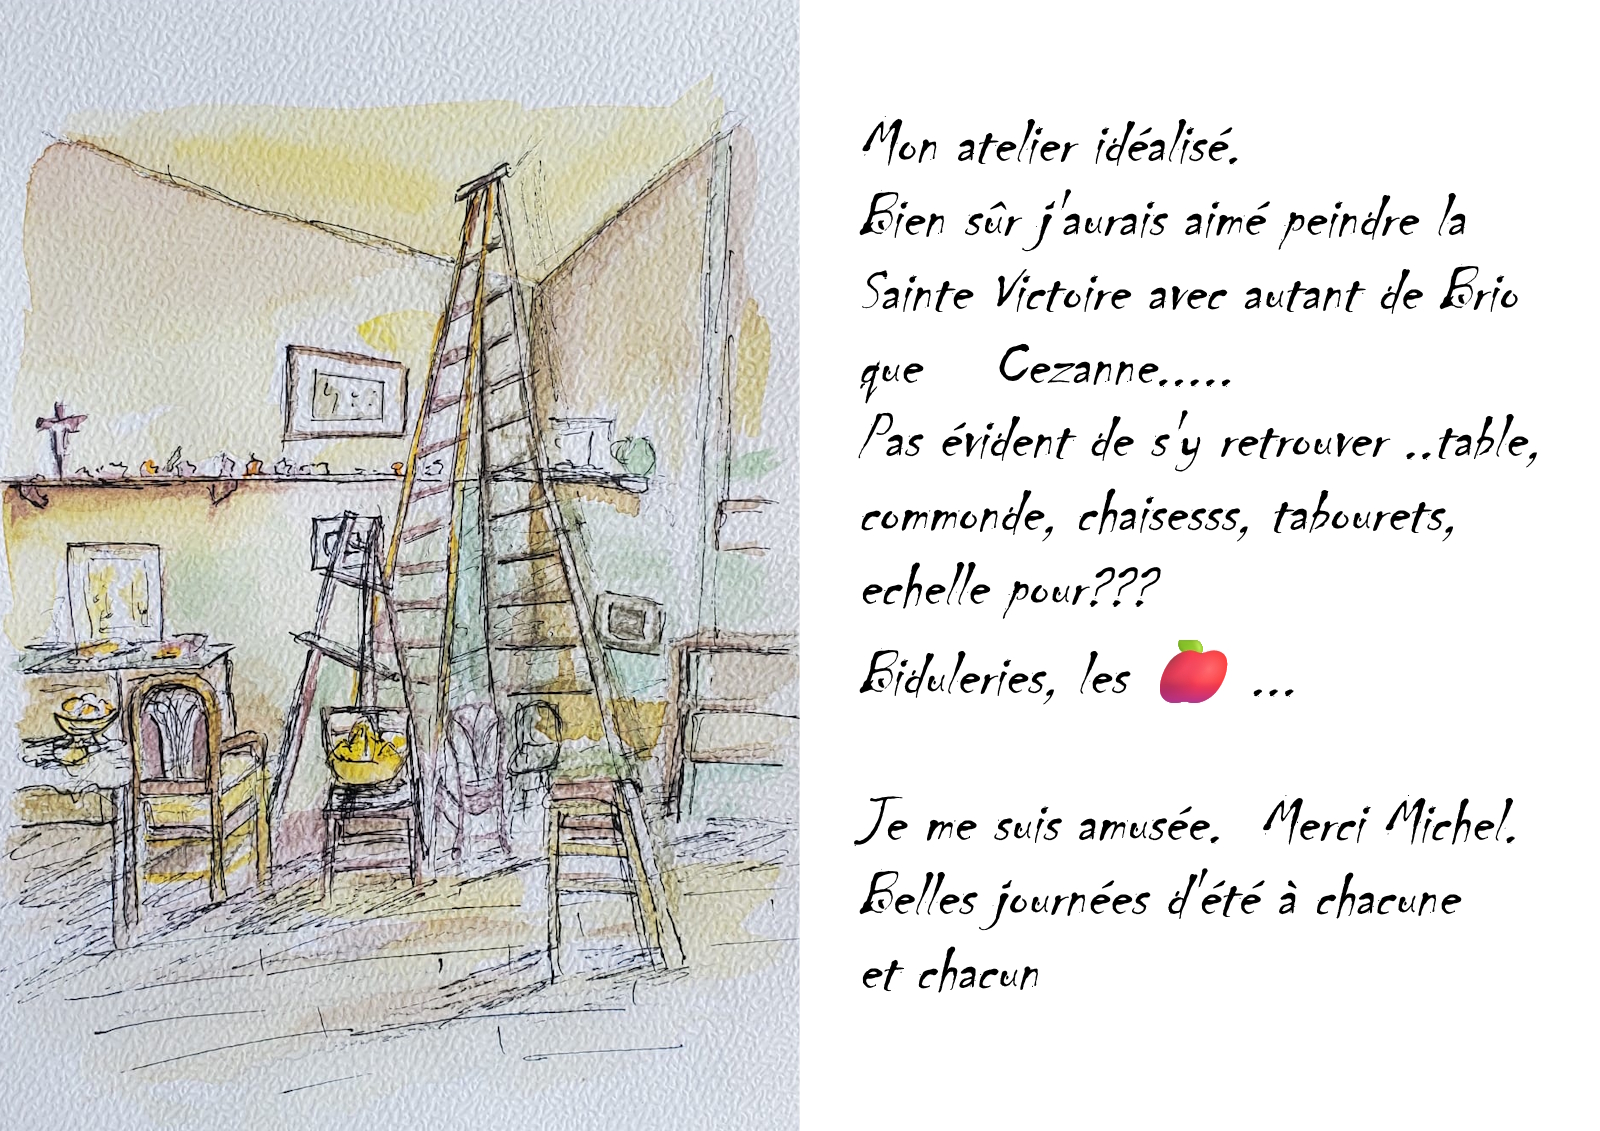 Mon atelier idéalisé.
Bien sûr j'aurais aimé peindre la
Sainte Victoire avec autant de Brio
que Cezanne.....
Pas évident de s'y retrouver ..table,
commonde, chaisesss, tabourets,
echelle pour???
Biduleries, les 🍎 ...
Je me suis amusée. Merci Michel.
Belles journées d'été à chacune
et chacun